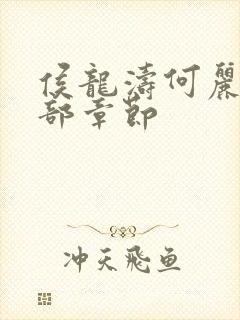 侯龍濤何麗
部章節
冲天飛鱼